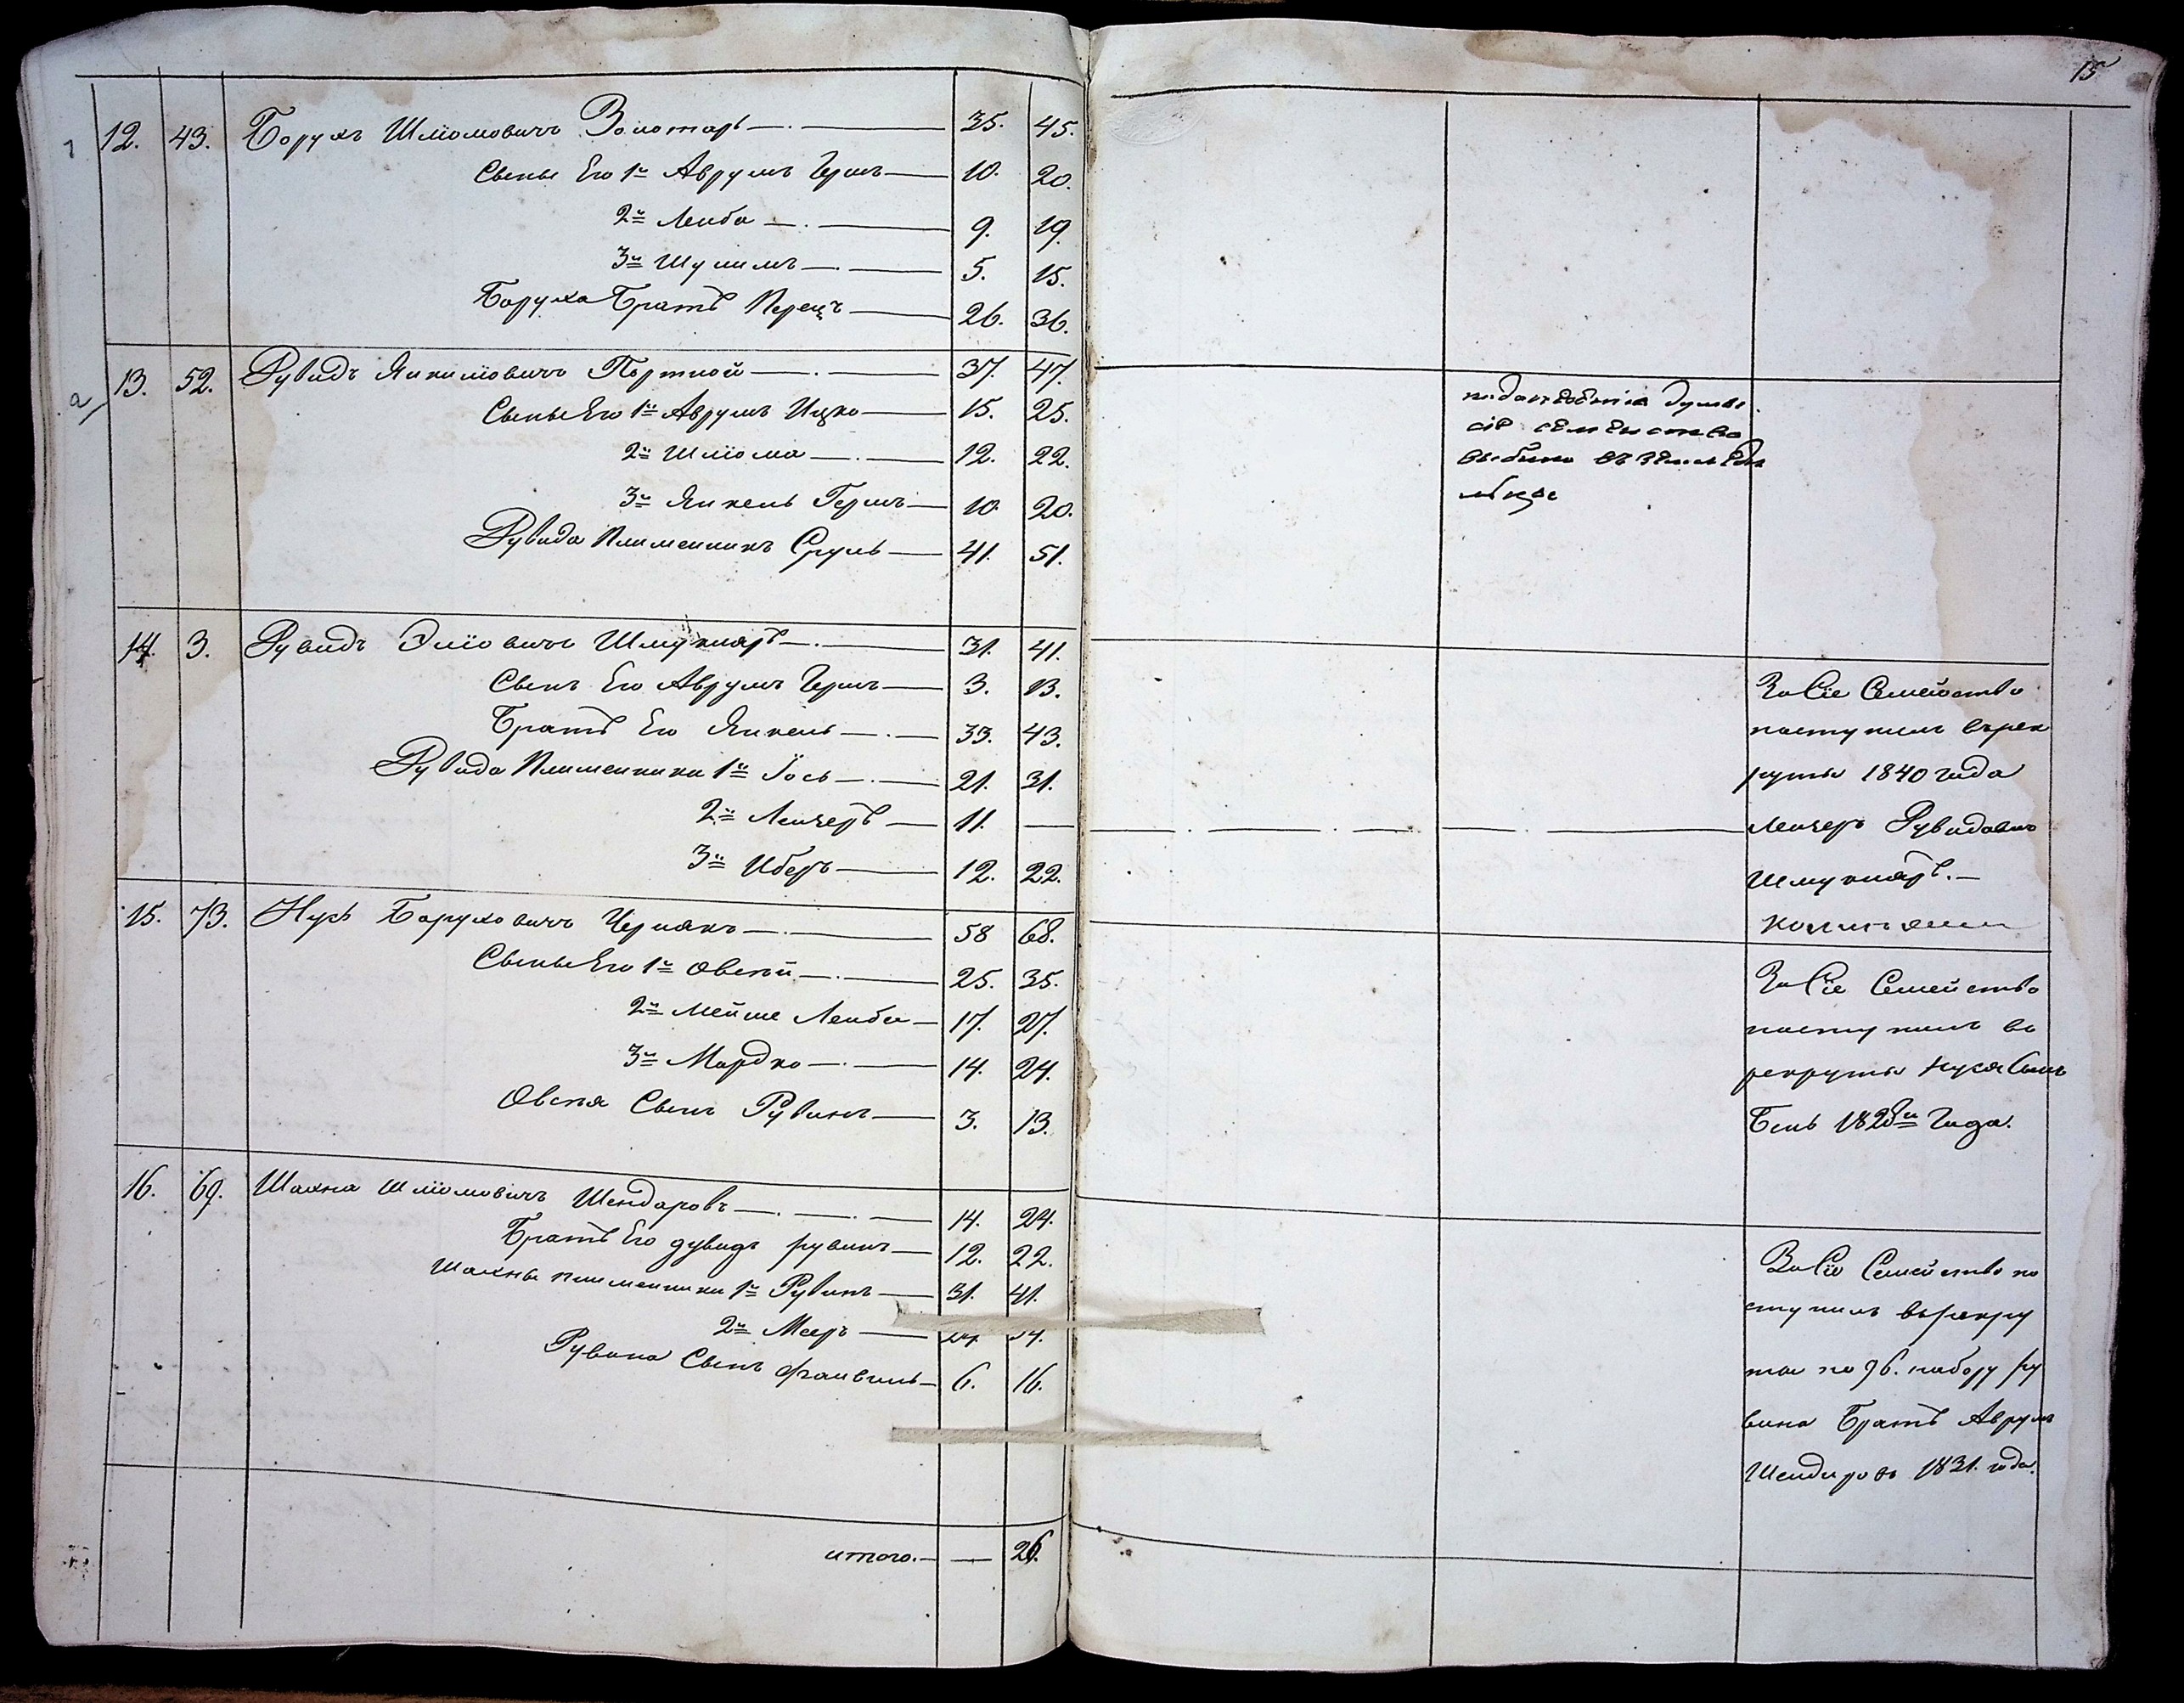 15
12. 43. Борухъ Шлiомовичъ Золотарь 35. 45.
Сыны Его 1й Аврумъ Гершъ 10. 20.
2й Лейба 9. 19.
3й Шулимъ 5. 15.
Боруха Братъ Перецъ 26. 36.
13. 52. Рувидъ Янкилiовичъ Портной 37. 47.
Сыны Его 1й Аврумъ Ицко 15. 25.
2й Шлiома 12. 22.
3й Янкель Гершъ 10. 20.
Рувида Племенникъ Сруль 41. 51.
сiе семейство
14. 3. Рувидъ Элiовичъ Шмукляръ 31. 41.
Сынъ Его Аврумъ Гершъ 3. 13.
Братъ Его Янкель 33. 43.
Рувида Племенники 1й Iось 21. 31.
2й Лейзеръ 11. —
3й Иберъ 12. 22.
За Сiе Семейство
поступилъ врек
руты 1840 года
Лейзеръ Рувидовичъ
Шмукляръ. —
15. 73. Нусь Боруховичъ Чернякъ 58 68.
Сыны Его 1й Овсѣй 25. 35.
2й Мейше Лейба 17. 27.
3й Мордко 14. 24.
Овсѣя Сынъ Рувинъ 3. 13.
За Сiе Семейство
поступилъ во
рекруты Нуся Сынъ
Бень 1828го Года.
16. 69. Шахна Шлiомовичъ Шендаровъ 14. 24.
Братъ Его дувидъ рувинъ 12. 22.
Шахны племенники 1й Рувинъ 31. 41.
2й Мееръ 24. 34.
Рувина Сынъ Файвиль 6. 16.
За Сiе Семейство по
ступилъ врекру
ты по 96. набору ру
вина Братъ Аврумъ
Шендировъ 1831. года.
итого. — 26.